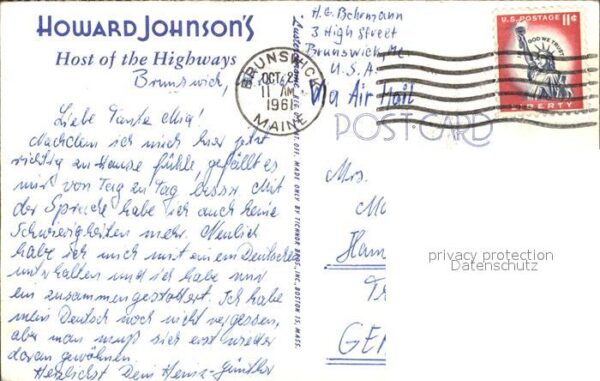 HOWARD JOHNSON'S
Host of the Highways
Brunswick,
Liebe Tante Mia!
Nachdem ich mich hier jetzt
richtig zu Hause fühle, gefällt es
mir von Tag zu Tag besser. Mit
der Sprache habe ich auch keine
Schwierigkeiten mehr. Neulich
habe ich mich mit einem Deutschen
unterhalten und ich habe nur
ein zusammengestottert. Ich habe
mein Deutsch noch nicht vergessen,
aber man muß sich erst wieder
daran gewöhnen.
Herzlichst Dein Heinz-Günther
H.G. Behrmann
3 High Street
Brunswick, Me.
U.S.A.
Via Air Mail
BRUNSWICK
OCT 2
11 AM
1961
MAINE
U.S. POSTAGE 11¢
IN GOD WE TRUST
LIBERTY
POST CARD
Mrs.
M
Ham
GE
privacy protection
Datenschutz
MADE ONLY BY
BOSTON 15, MASS.